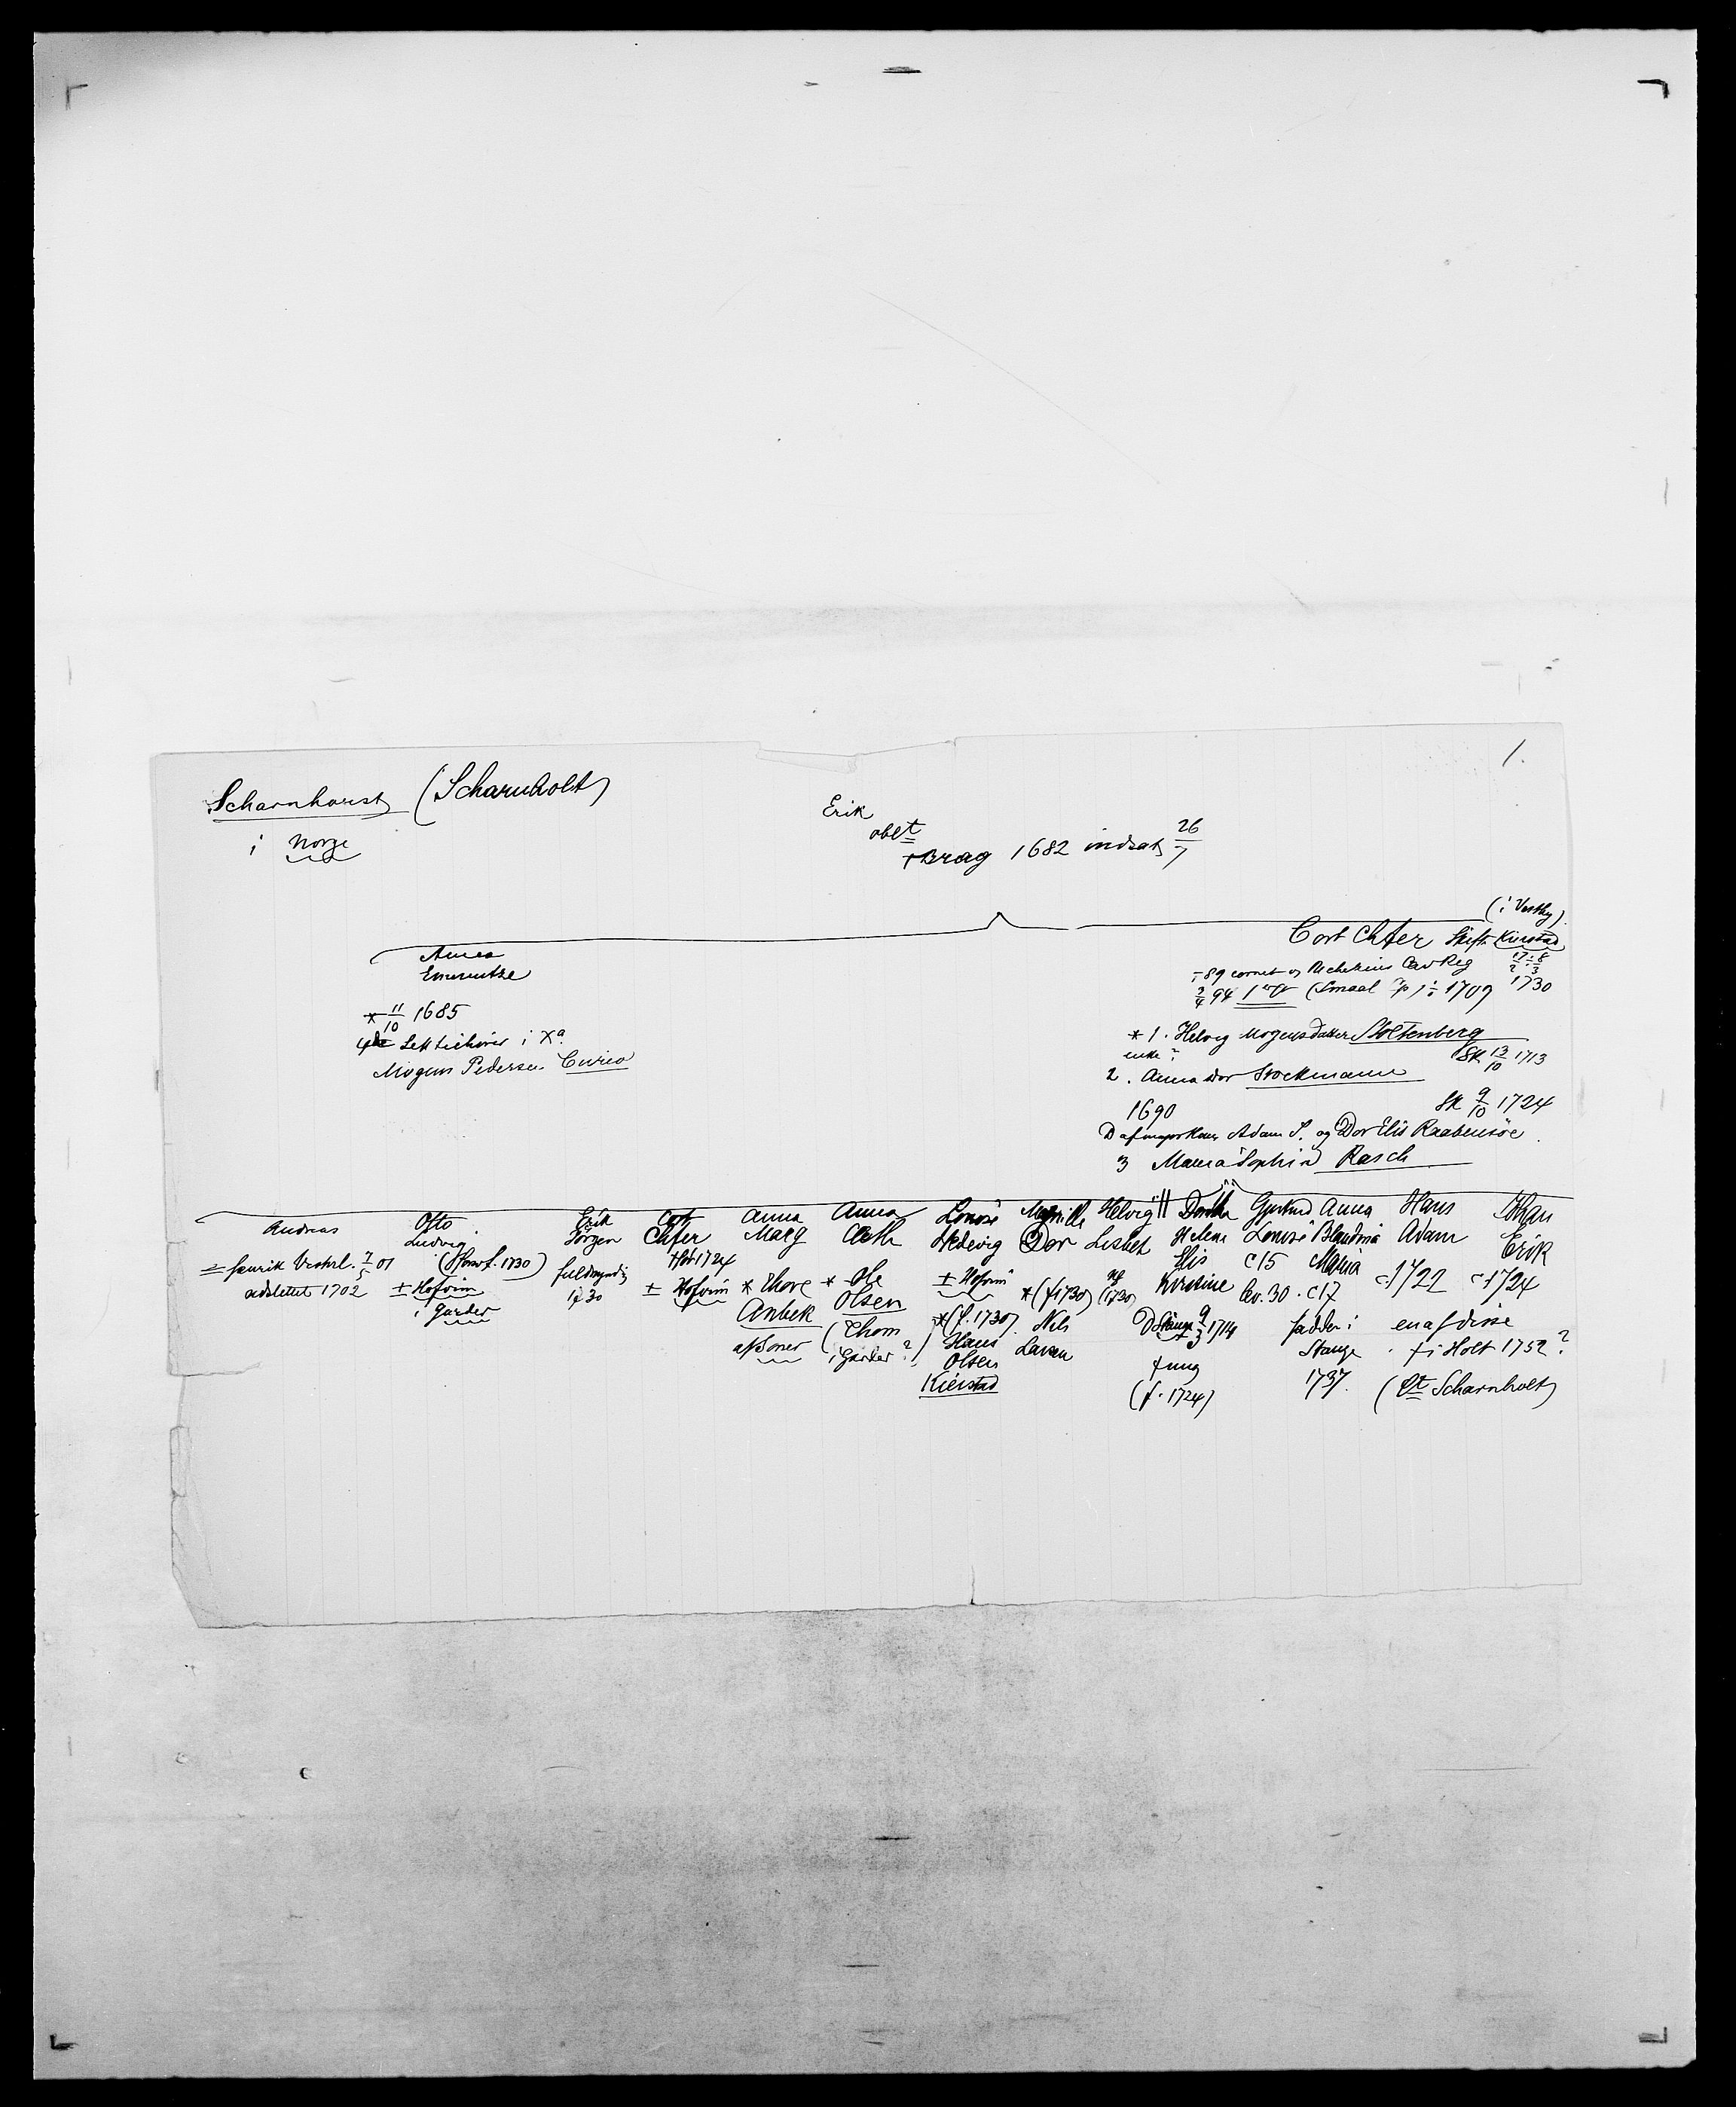 1.
Scharnhorst (Scharnholt)
i Norge
Erik
oblt
† Brag 1682 indsat 26/7
(i Vestby)
Anna
Emerentze
* 11/10 1685
4de Lektiehører i Xa
Mogens Pedersen Curio
Cort Chfer Skifte Kierstad
1730
÷ 89 cornet og Cav Reg
2/4 94 (Smaal) ÷ 1709
* 1. Helvig Mogensdatter Stoltenberg
enke i
Sk 13/10 1713
2. Anna Dor Stockmann
1690
Sk 9/10 1724
D af major Hans Adam S. og Dor Elis Raabensöe
3 Maria Sophia Rasch
Andreas
= fenrik 7/5 01
1702
Otto
Ludvig
(f. 1730)
± Hofvin
i Garder
Erik
Jörgen
fuldmyndig
1730
Cort
Chfer
1724
± Hofvin
Anna
Marg
* Thore
Anbek
af Soner
Anna
Cath
* Ole
Olsen
(Thom
i Garder?)
Lovise
Hedevig
± Hofvin
* (f. 1730)
Hans
Olsen
Kierstad
Magnille
Dor
* (f 1730)
Nils
Larsen
Helvig
Lisbet
ug
(1730)
Dorthe
Helene
Elis
Kirstine
D Stange 9/3 1714
† ung
(f. 1724)
Gjertrud
Lovise
c 15
lev. 30.
Anna
Blandina
Maria
c 17
fadder i
Stange
1737.
Hans
Adam
c. 1722
Johan
Erik
c. 1724
en af disse
† i Holt 1752?
(Lt Scharnholt)